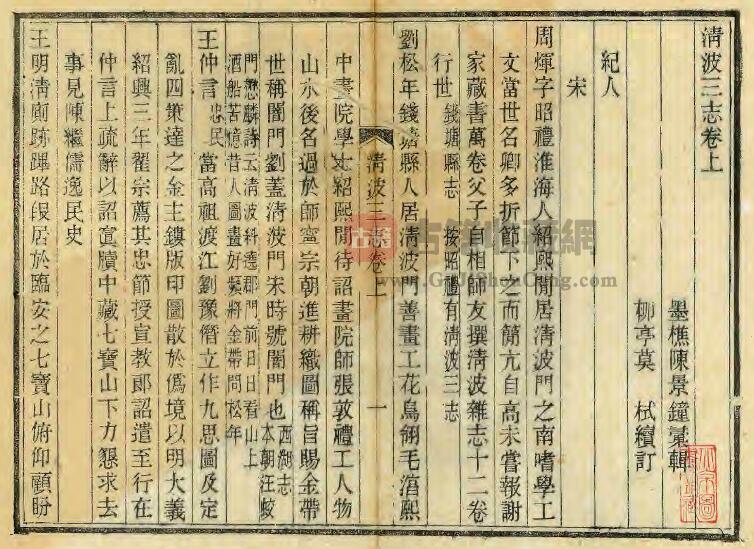 清波三志卷上
墨樵陳景鐘彙輯
柳亭莫　栻續訂
紀人
宋
周煇字昭禮淮海人紹熙閒居清波門之南嗜學工
文當世名卿多折節下之而簡亢自高未嘗報謝
家藏書萬卷父子自相師友撰清波雜志十二卷
行世錢塘縣志　按昭禮有清波三志
劉松年錢塘縣人居清波門善畫工花鳥翎毛淳熙
清波三志卷上　一
中畫院學士紹熙閒待詔畫院師張敦禮工人物
山水後名過於師寧宗朝進耕織圖稱旨賜金帶
世稱闇門劉蓋清波門宋時號闇門也西湖志　本朝汪蛟
門懋麟詩云清波斜遶郡門前日日看山上
酒船苦憶昔人圖畫好擬將金帶問松年
王仲言忠民當高祖渡江劉豫僭立作九思圖及定
亂四策達之金主鏤版印圖散於僞境以明大義
紹興三年翟宗薦其忠節授宣教郎詔遣至行在
仲言上疏辭以詔寘牘中藏七寶山下力懇求去
事見陳繼儒逸民史
王明清廁跡蹕路段居於臨安之七寶山俯仰顧盼
古籍收藏網
www.GuJiShouCang.com